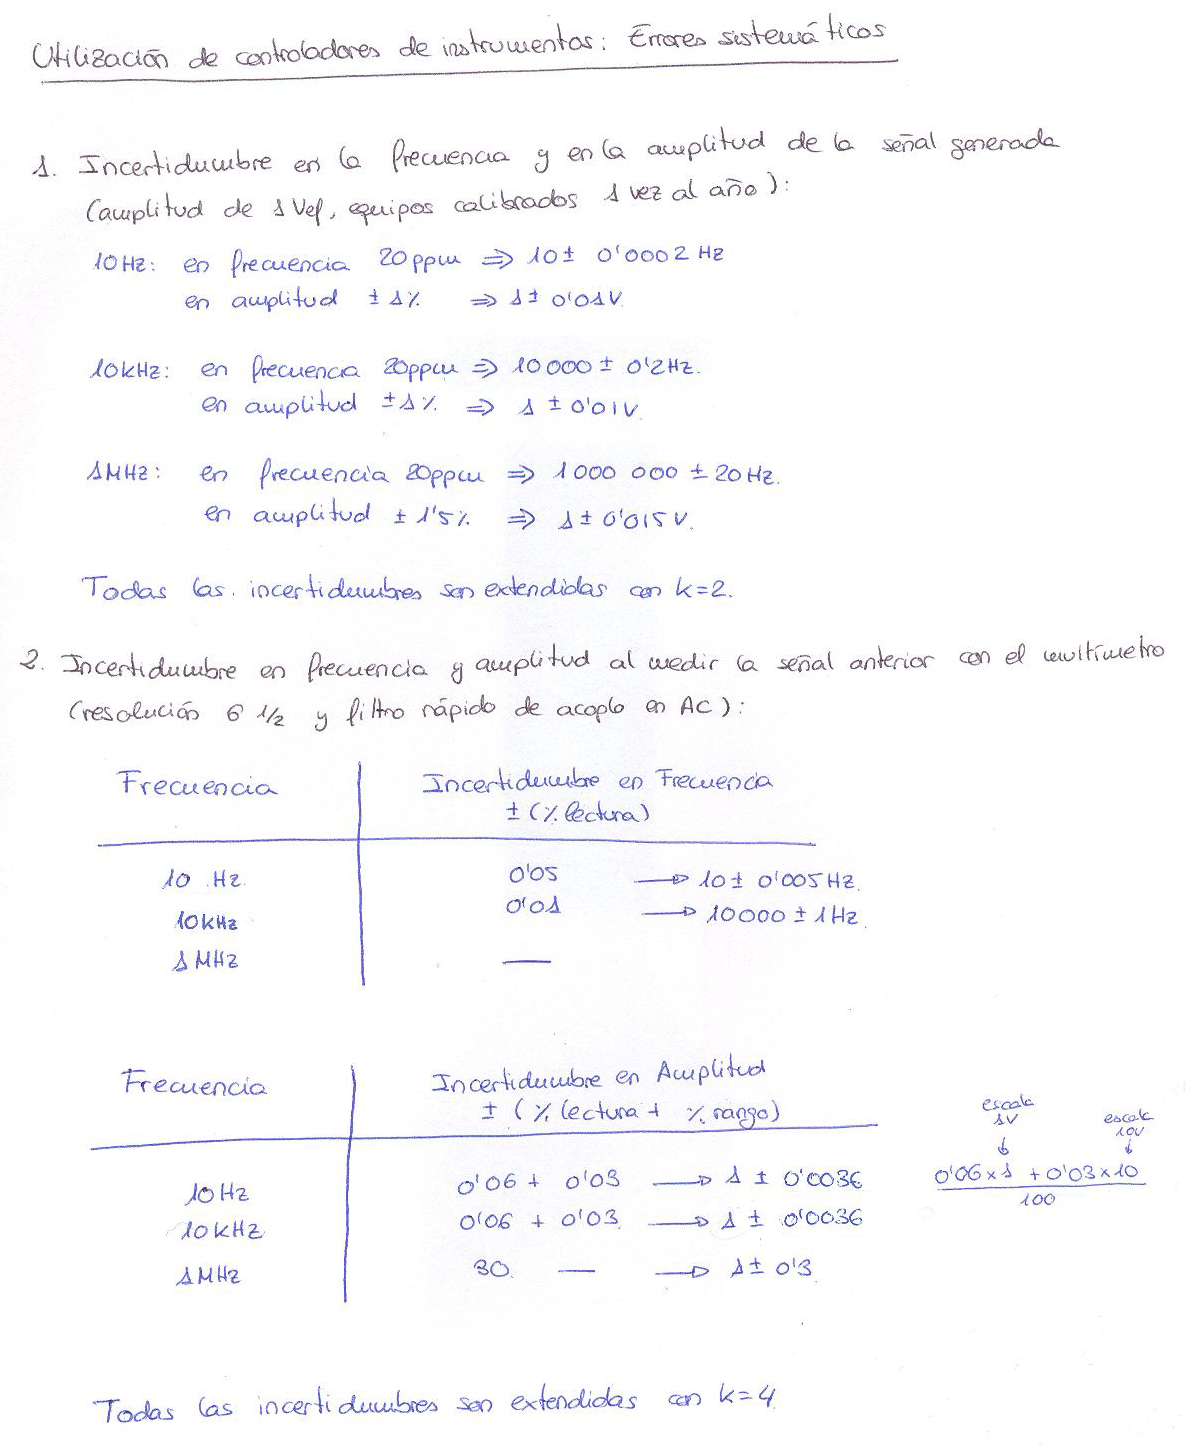 Utilización de controladores de instrumentos: Errores sistemáticos
1. Incertidumbre en la frecuencia y en la amplitud de la señal generada
(amplitud de 1 Vef, equipos calibrados 1 vez al año):
10Hz: en frecuencia 20ppm ⇒ 10 ± 0'0002 Hz
en amplitud ± 1% ⇒ 1 ± 0'01V
10kHz: en frecuencia 20ppm ⇒ 10000 ± 0'2Hz.
en amplitud ± 1% ⇒ 1 ± 0'01V
1MHz: en frecuencia 20ppm ⇒ 1000 000 ± 20Hz.
en amplitud ± 1'5% ⇒ 1 ± 0'015V.
Todas las incertidumbres son extendidas con k=2.
2. Incertidumbre en frecuencia y amplitud al medir la señal anterior con el multímetro
(resolución 6 1/2 y filtro rápido de acoplo en AC):
Frecuencia Incertidumbre en Frecuencia
± (% lectura)
10 Hz 0'05 → 10 ± 0'005Hz.
10kHz 0'01 → 10000 ± 1Hz.
1MHz —
Frecuencia Incertidumbre en Amplitud
± (% lectura + % rango)
escala 1V ↓ escala 10V ↓
10Hz 0'06 + 0'03 → 1 ± 0'0036 0'06×1 + 0'03×10
100
10kHz 0'06 + 0'03 → 1 ± 0'0036
1MHz 30 — → 1 ± 0'3
Todas las incertidumbres son extendidas con k=4